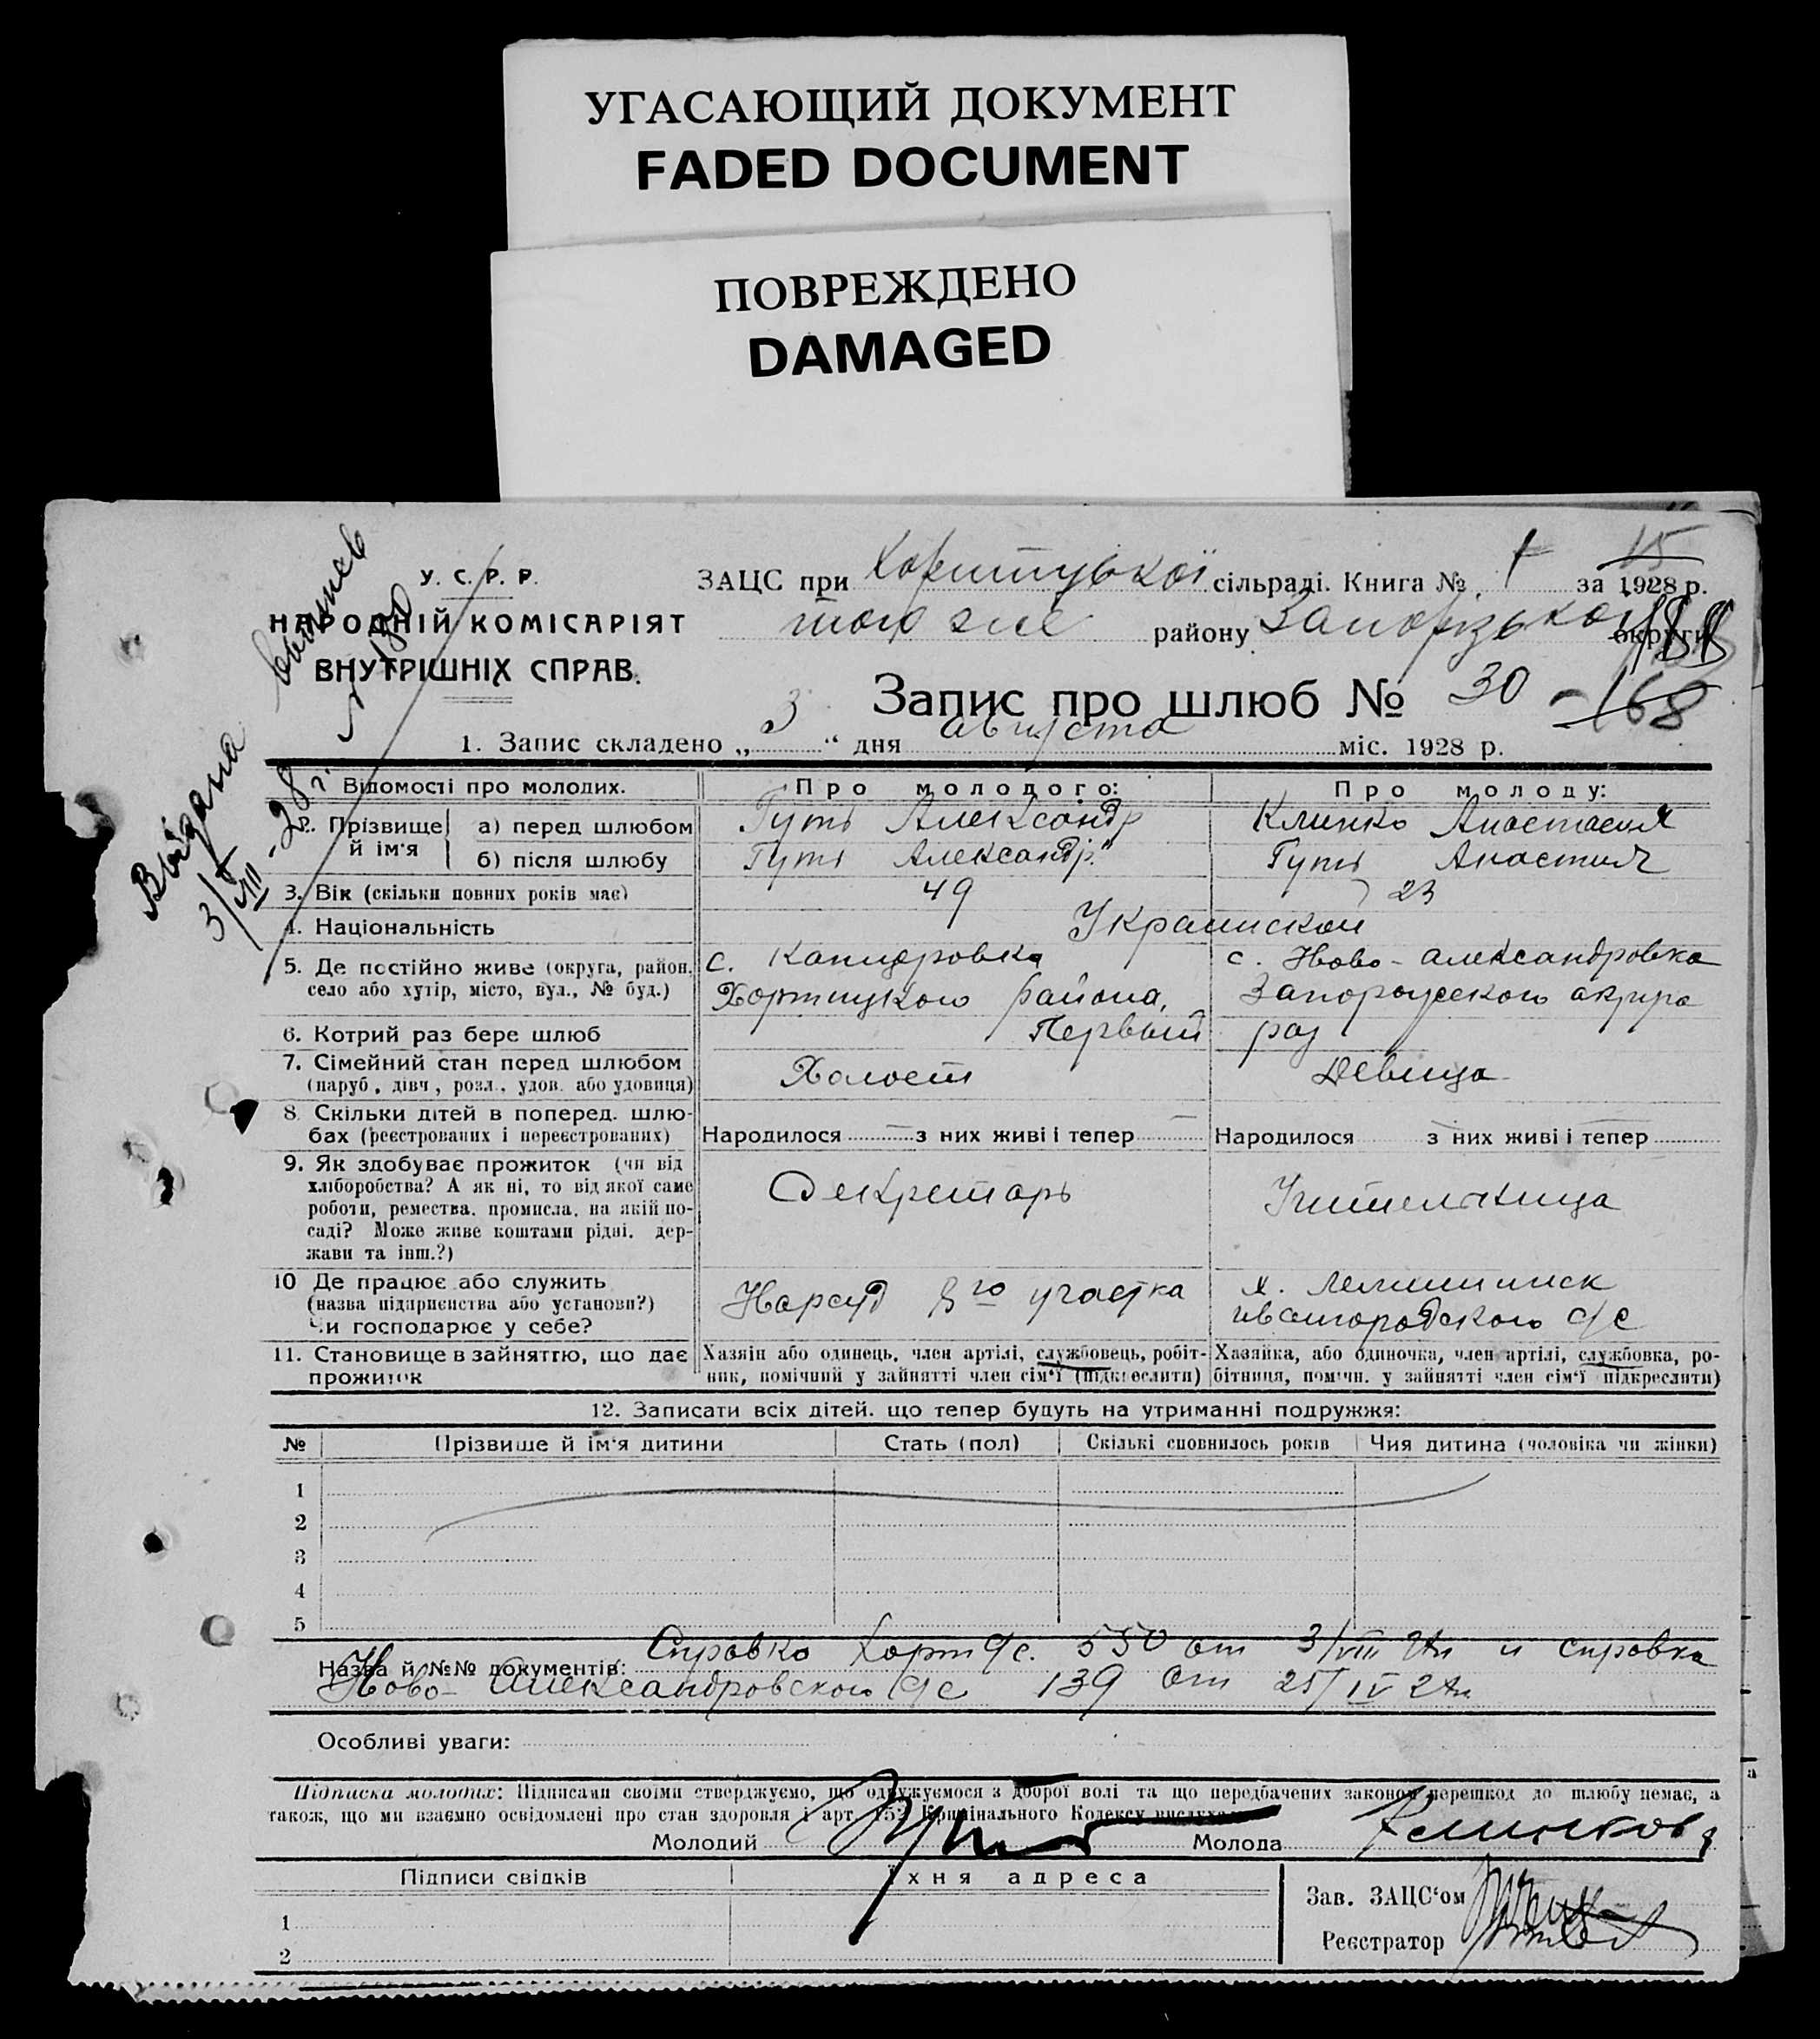 УГАСАЮЩИЙ ДОКУМЕНТ
FADED DOCUMENT
ПОВРЕЖДЕНО
DAMAGED
У. С. Р. Р.
НАРОДНІЙ КОМІСАРІЯТ
ВНУТРІШНІХ СПРАВ.
Видана
3/VIII-28 г.
№ 180
ЗАЦС при Хортицької сільраді. Книга № 1 за 1928 р.
15
того же району Запорізької округи
188
Запис про шлюб № 30
168
1. Запис складено „3“ дня августа міс. 1928 р.
Відомості про молодих.
Про молодого:
Про молоду:
2. Прізвище й ім'я
а) перед шлюбом
Гуть Александр
Клинко Анастасия
б) після шлюбу
Гуть Александр
Гуть Анастасия
3. Вік (скільки повних років має)
49
23
4. Національність
Украинской
5. Де постійно живе (округа, район, село або хутір, місто, вул., № буд.)
с.
Хортицкого района,
с. Ново-Александровка
Запорожского округа
6. Котрий раз бере шлюб
Первый раз
7. Сімейний стан перед шлюбом
(паруб., дівч., розл., удов. або удовиця)
Холост
Девица
8. Скільки дітей в поперед. шлюбах (реєстрованих і нереєстрованих)
Народилося — з них живі і тепер —
Народилося з них живі і тепер
9. Як здобуває прожиток (чи від
хліборобства? А як ні, то від якої саме
роботи, ремества, промисла, на якій по-
саді? Може живе коштами рідні, дер-
жави та інш.?)
Секретарь
Учительница
10 Де працює або служить
(назва підприємства або установи?)
Чи господарює у себе?
Нарсуд 8го участка
с/с
11. Становище в зайняттю, що дає
прожиток
Хазяїн або одинець, член артілі, службовець, робіт-
ник, помічний у зайнятті член сім'ї (підкреслити)
Хазяйка, або одиночка, член артілі, службовка, ро-
бітниця, помічн. у зайнятті член сім'ї підкреслити)
12. Записати всіх дітей, що тепер будуть на утриманні подружжя:
№
Прізвище й ім'я дитини
Стать (пол)
Скількі сповнилось років
Чия дитина (чоловіка чи жінки)
1
2
3
4
5
Назва й №№ документів: Справка Хорт с/с. 550 от 3/VIII 28г и справка
Ново-Александровского с/с 139 от 25/IV 28г
Особливі уваги:
Підписка молодих: Підписами своїми стверджуємо, що одружуємося з доброї волі та що передбачених законом перешкод до шлюбу немає, а
також, що ми взаємно освідомлені про стан здоровля і арт. 152 Кримінального Кодексу
Молодий
Молода
Підписи свідків
Їхня адреса
1
2
Зав. ЗАЦС'ом
Реєстратор